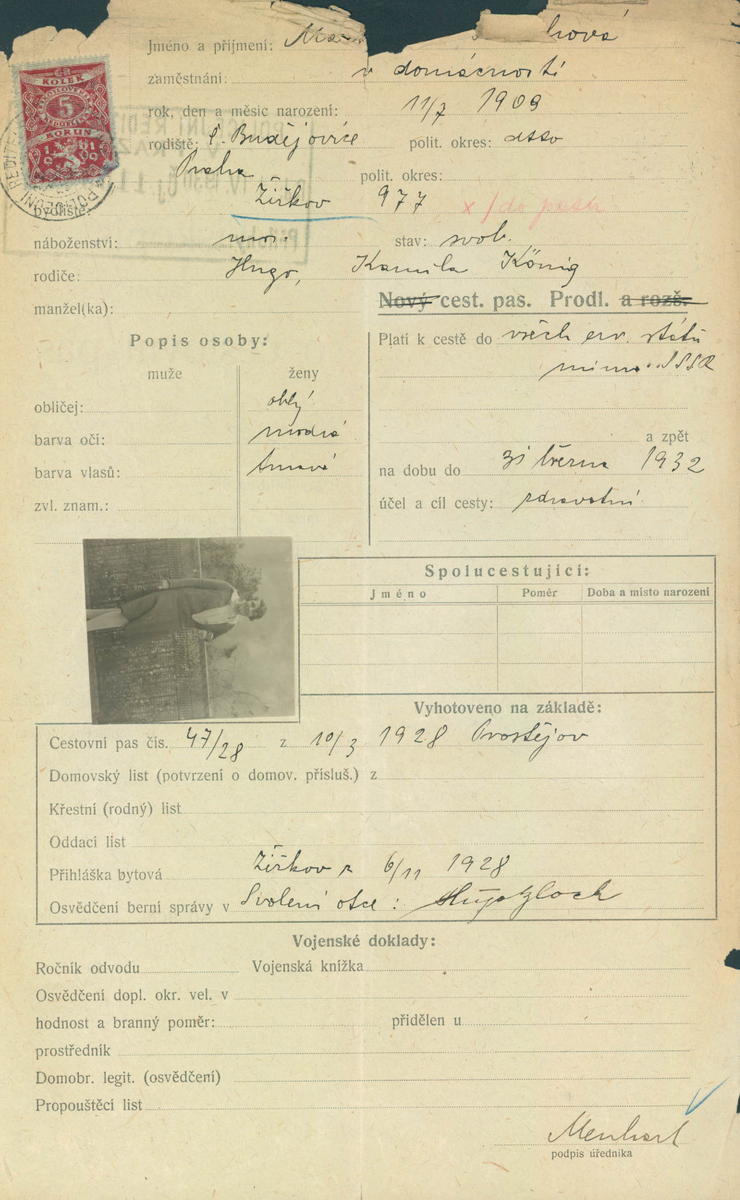 Jméno a příjmení: Ma hová
zaměstnání: v domácnosti
rok, den a měsíc narození: 11/7 1909
rodiště: Č. Budějovice polit. okres: dtto
Praha polit. okres:
bydliště: Žižkov 977 x/do pasu
náboženství: mos. stav: svob.
rodiče: Hugo, Kamila König
manžel(ka):
Nový cest. pas. Prodl. a rozš.
Popis osoby:
muže ženy
obličej: oblý
barva očí: modrá
barva vlasů: tmavá
zvl. znam.:
Platí k cestě do všech evr. států
mimo SSSR
a zpět
na dobu do 31 března 1932
účel a cíl cesty: zdravotní
KOLEK
5
KORUN
Spolucestující:
Jméno Poměr Doba a místo narození
Vyhotoveno na základě:
Cestovní pas čís. 47/28 z 10/3 1928 Prostějov
Domovský list (potvrzení o domov. přísluš.) z
Křestní (rodný) list
Oddací list
Přihláška bytová Žižkov z 6/11 1928
Osvědčení berní správy v Svolení otce:
Vojenské doklady:
Ročník odvodu Vojenská knížka
Osvědčení dopl. okr. vel. v
hodnost a branný poměr: přidělen u
prostředník
Domobr. legit. (osvědčení)
Propouštěcí list
Menhart
podpis úředníka